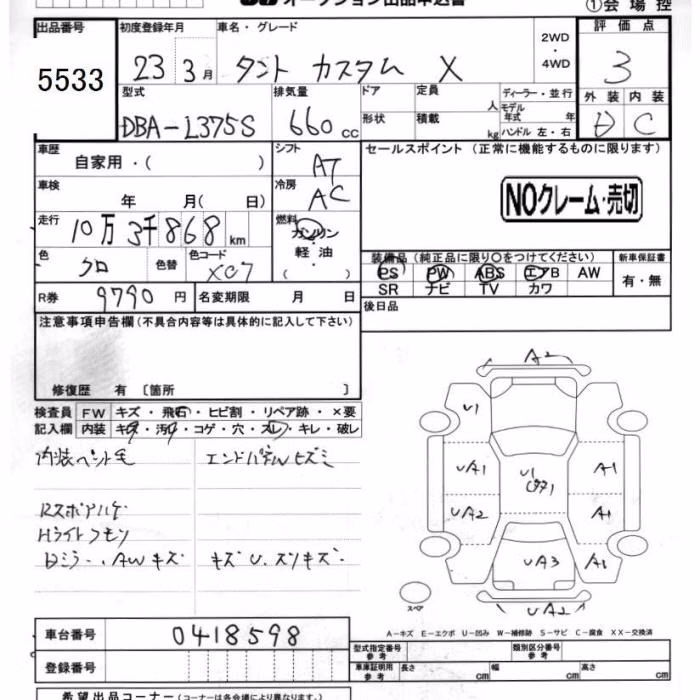 オークション出品申込書 ①会場控
出品番号 初度登録年月 車名・グレード 2WD・4WD 評価点
5533 23 3月 タント カスタム X 3
型式 排気量 ドア 定員 人 ディーラー・並行 外装 内装
モデル年式 年
DBA-L375S 660cc 形状 積載 kg ハンドル 左・右 D C
車歴 自家用・( ) シフト AT セールスポイント (正常に機能するものに限ります)
車検 年 月( 日) 冷房 AC NOクレーム・売切
走行 10万3千868km 燃料 ガソリン
軽油
・( )
色 クロ 色替 色コード X07 装備品(純正品に限り○をつけてください) 新車保証書
PS PW ABS エアB AW 有・無
SR ナビ TV カワ
R券 9790円 名変期限 月 日 後日品
注意事項申告欄(不具合内容等は具体的に記入して下さい)
修復歴 有 〔箇所 〕
検査員 FW キズ・飛石・ヒビ割・リペア跡・×要
記入欄 内装 キズ・汚れ・コゲ・穴・スレ・キレ・破レ
内装ペット毛 エンドパネルヒズミ
Rスポアハゲ
Hライトクモリ
Dミラー、AWキズ キズU.スリキズ.
A2
U1
UA1 U1 A1
UA2 A1
UA3 A1
スペア UA2
A-キズ E-エクボ U-凹み W-補修跡 S-サビ C-腐食 XX-交換済
車台番号 0418598
型式指定番号 参考 類別区分番号 参考
登録番号 車庫証明用 参考 長さ cm 幅 cm 高さ cm
希望出品コーナー(コーナーは各会場により異なります)